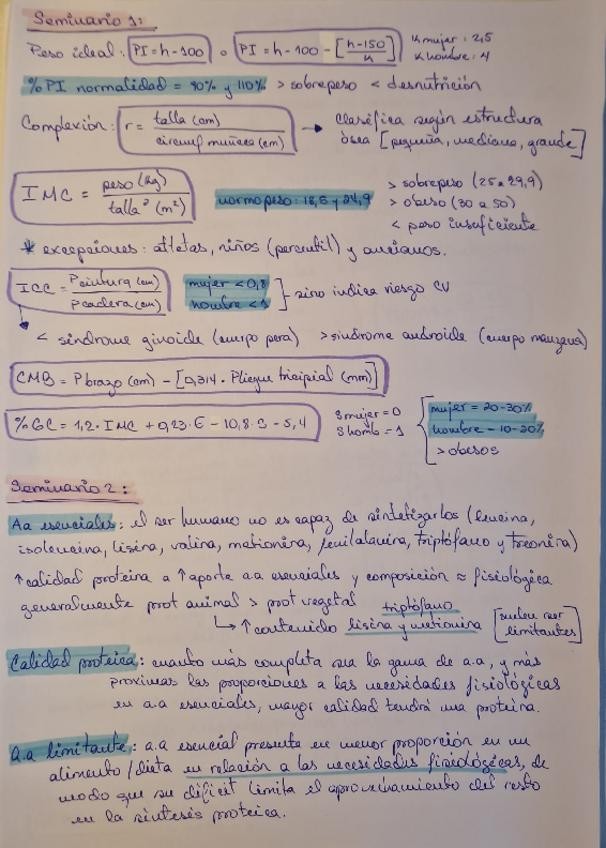 Seminario 1:
Peso ideal: PI = h-100 o PI = h - 100 - [h-150/K] K mujer: 2,5
K hombre: 4
% PI normalidad = 90% y 110% > sobrepeso < desnutrición
Complexión: r = talla (cm)/circunf muñeca (cm) → clasifica según estructura
ósea [pequeña, mediana, grande]
IMC = peso (kg)/talla² (m²) normopeso: 18,5 y 24,9 > sobrepeso (25 a 29,9)
> obeso (30 a 50)
< peso insuficiente
* excepciones: atletas, niños (percentil) y ancianos.
ICC = Pcintura (cm)/Pcadera (cm) mujer < 0,8
hombre < 1 } sino indica riesgo CV
↳ < síndrome ginoide (cuerpo pera) > síndrome androide (cuerpo manzana)
CMB = Pbrazo (cm) - [0,314 · Pliegue tricipital (mm)]
% GC = 1,2 · IMC + 0,23 · E - 10,8 · S - 5,4 S mujer = 0
S homb = 1 { mujer = 20-30%
hombre - 10-20%
> obesos
Seminario 2:
Aa esenciales: el ser humano no es capaz de sintetizarlos (leucina,
isoleucina, lisina, valina, metionina, fenilalanina, triptófano y treonina)
↑ calidad proteina a ↑ aporte aa esenciales y composición ≈ fisiológica
generalmente prot animal > prot vegetal triptófano
↳ ↑ contenido lisina y metionina [suelen ser
limitantes]
Calidad proteica: cuanto más completa sea la gama de a.a, y más
proximas las proporciones a las necesidades fisiológicas
en a.a esenciales, mayor calidad tendrá una proteína.
a.a limitante: a.a esencial presente en menor proporción en un
alimento / dieta en relación a las necesidades fisiológicas, de
modo que su déficit limita el del resto
en la síntesis proteica.